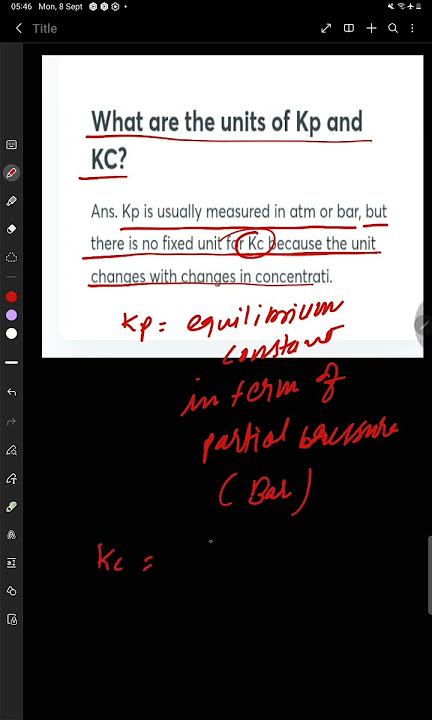 05:46 Mon, 8 Sept
Title
What are the units of Kp and
KC?
Ans. Kp is usually measured in atm or bar, but
there is no fixed unit for Kc because the unit
changes with changes in concentrati.
Kp = equilibrium
constant
in term of
partial pressure
(Bar)
Kc =